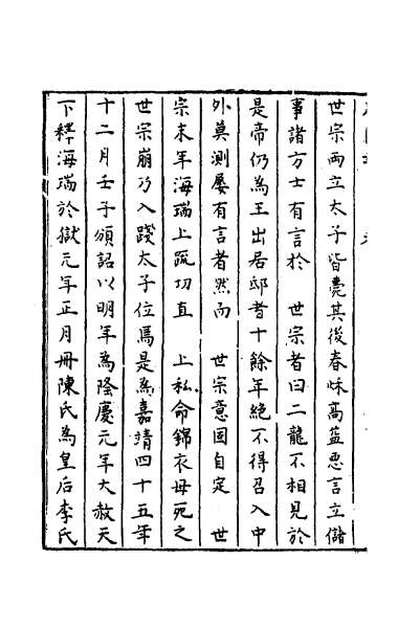 世宗兩立太子皆薨其後春秋高益惡言立儲
事諸方士有言於　世宗者曰二龍不相見於
是帝仍為王出居邸者十餘年絕不得召入中
外莫測屢有言者然而　世宗意固自定　世
宗末年海瑞上疏切直　上私命錦衣毋死之
世宗崩乃入踐太子位焉是為嘉靖四十五年
十二月壬子頒詔以明年為隆慶元年大赦天
下釋海瑞於獄元年正月冊陳氏為皇后李氏